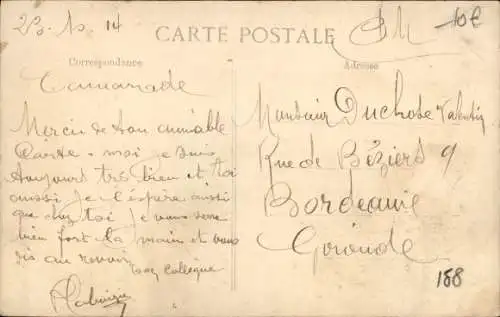 23. 10. 14
CARTE POSTALE
10€
Correspondance
Adresse
Camarade
Merci de ton aimable
Carte. moi je suis
toujours très bien et toi
aussi je l'éspère aussi
que chez toi Je vous serre
bien fort la main et vous
dis au revoir
ton collègue
Monsieur Duchose Valentin
Rue de Béziers 9
Bordeaux
Gironde
188